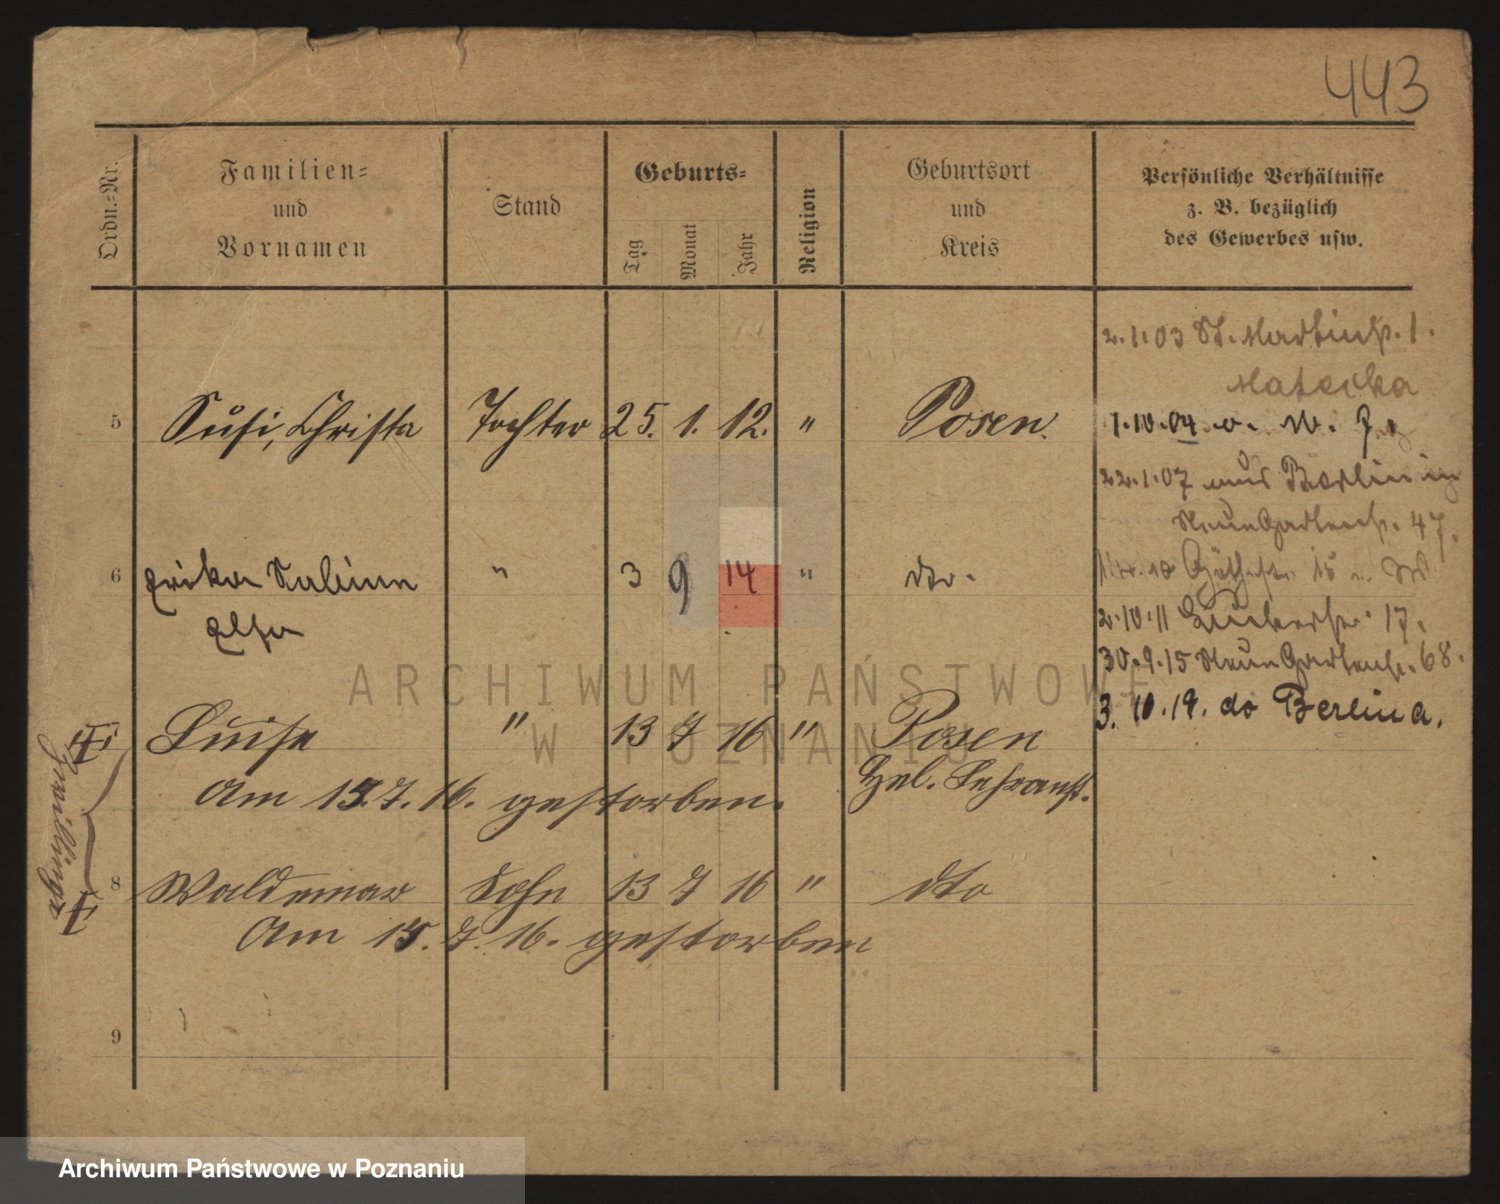 443
Ordn.-Nr.
Familien-
und
Vornamen
Stand
Geburts-
Tag
Monat
Jahr
Religion
Geburtsort
und
Kreis
Persönliche Verhältnisse
z. B. bezüglich
des Gewerbes usw.
2.1.03 St. Martinstr. 1.
Matecka
5 Susi, Christa Tochter 25. 1. 12. " Posen.
1.10.04 v. W.
22.1.07 aus Berlin in
Neue Gartenstr. 47.
6 Erika Sabina " 3 9 14 " dto.
Elsa
Göthestr. 15
2.10.11 17.
30.9.15 Neue Gartenstr. 68.
3.10.19. do Berlin a.
Luise " 13 7 16 " Posen
Am 15.7.16. gestorben. Heb. Lehranst.
Zwillinge
8 Waldemar Sohn 13 7 16 " dto
Am 15.7.16. gestorben
9
ARCHIWUM PAŃSTWOWE
W POZNANIU
Archiwum Państwowe w Poznaniu